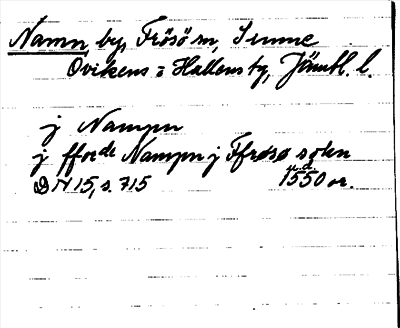 Namn, by, Frösö sn, Sunne
Ovikens o Hallens tg, Jämtl. l.
j Nampn
j fforde Nampn j Ffrøsø sokn
u.d.
DN 15, s. 715 1550 or.